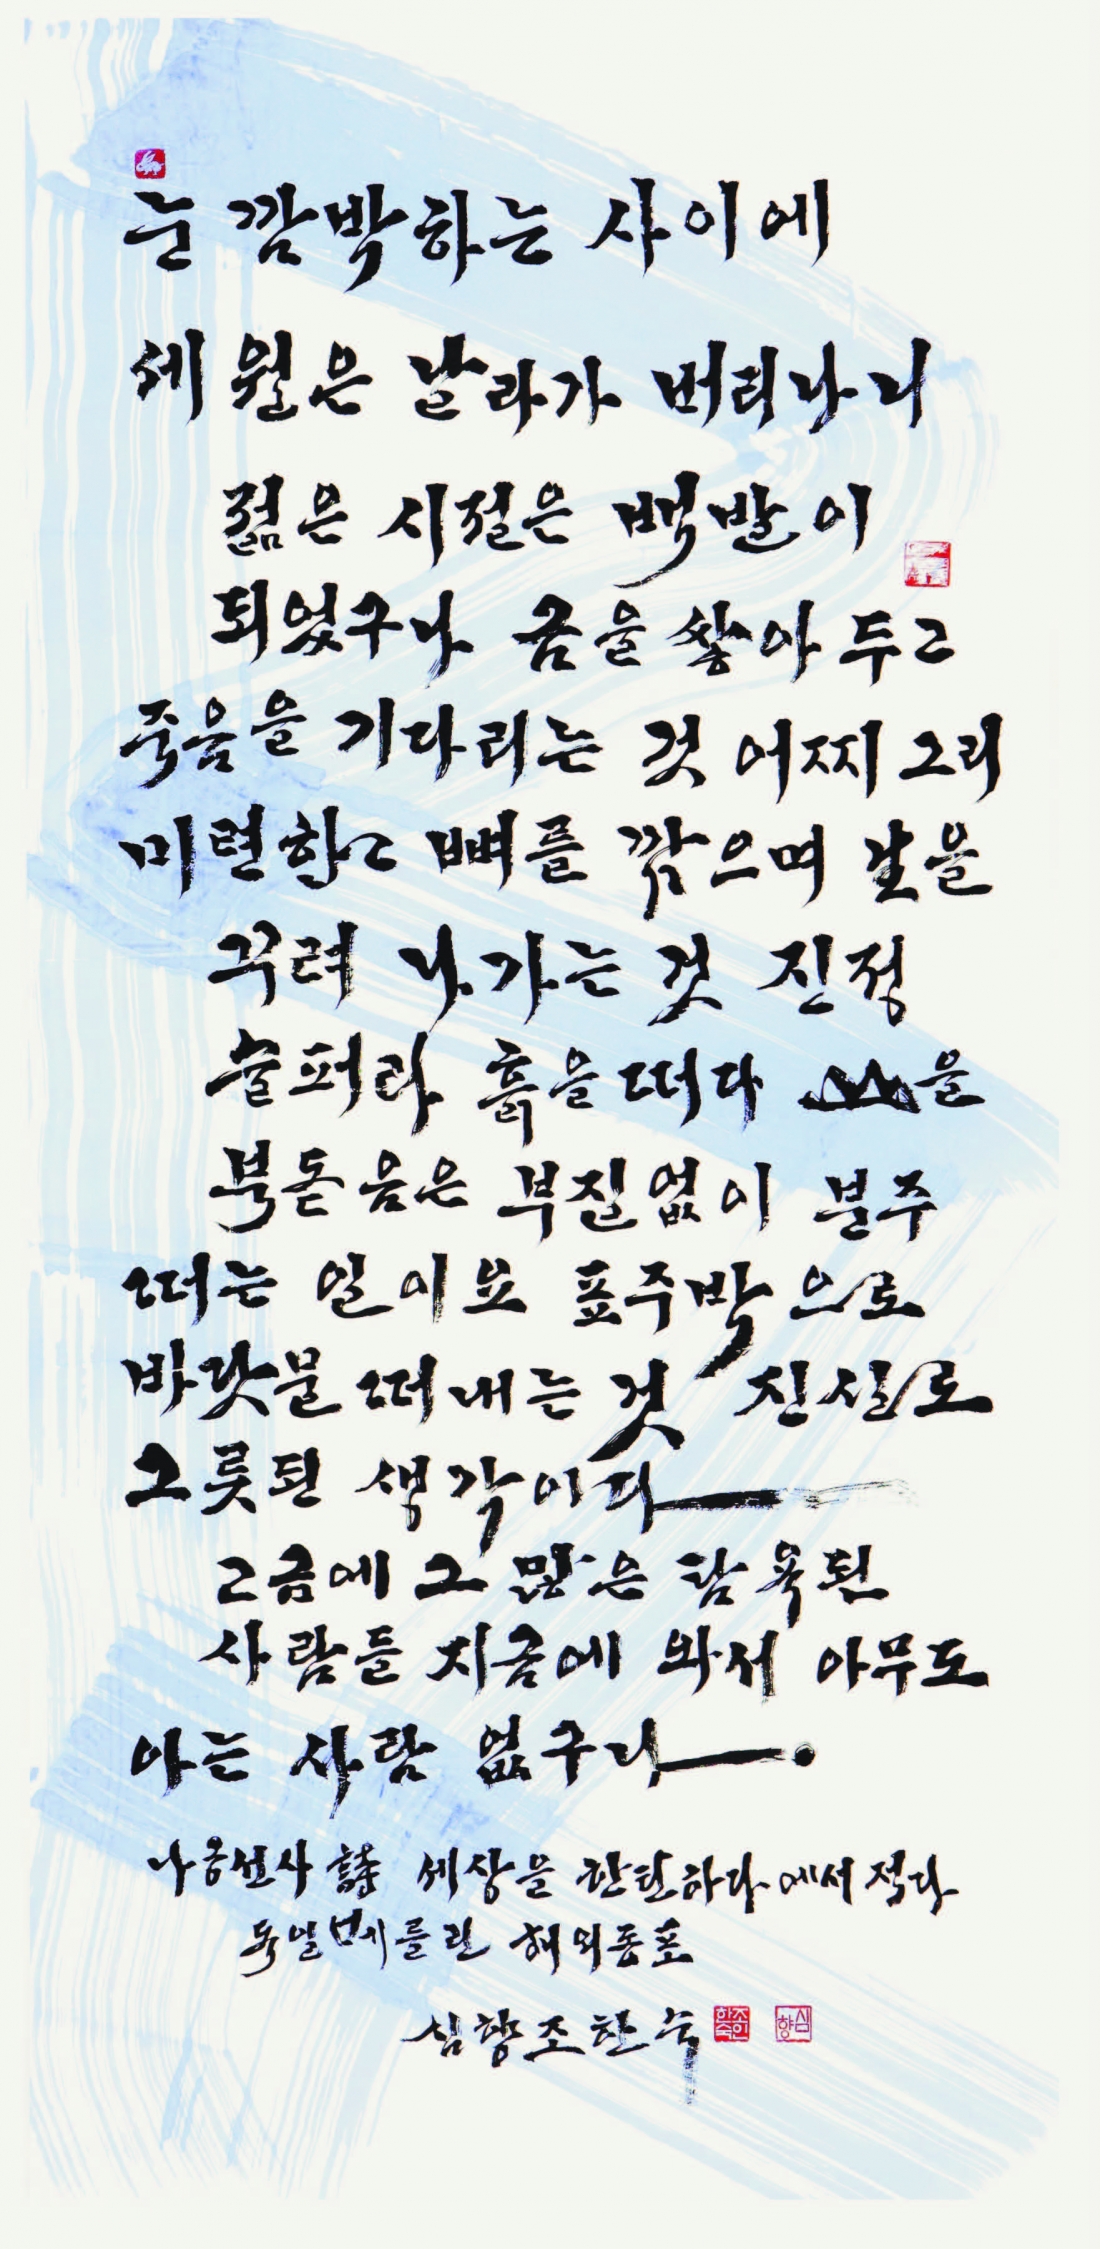 눈 깜박하는 사이에
세월은 날라가 버리나니
젊은 시절은 백발이
되었구나 금을 쌓아 두고
죽음을 기다리는 것 어찌 그리
미련한고 뼈를 깎으며 生을
꾸려 나가는 것 진정
슬퍼라 흙을 떠다 山을
북돋음은 부질없이 분주
떠는 일이요 표주박으로
바닷물 떠내는 것 진실로
그릇된 생각이다
고금에 그 많은 탐욕된
사람들 지금에 와서 아무도
아는 사람 없구나
나옹선사 詩 세상을 한탄하다에서 적다
독일 베를린 해외동포
심향 조한숙
심향